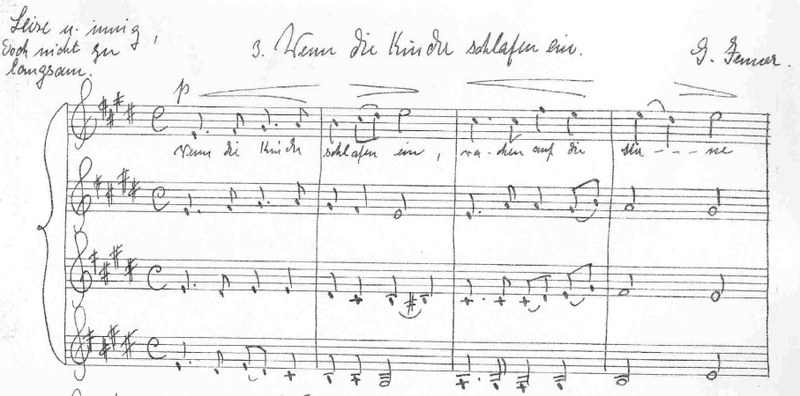 Leise u. innig,
doch nicht zu
langsam.
3. Wenn die Kinder schlafen ein.
G. Jenner.
p
Wenn die Kinder schlafen ein, wa-chen auf die Ster - - - ne